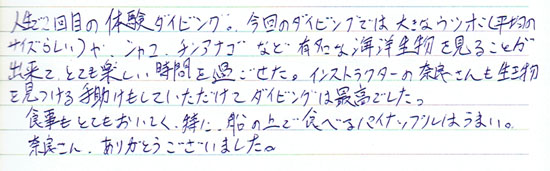 人生で2回目の体験ダイビング。今回のダイビングでは大きなウツボ(平均の
サイズらしい)や、シャコ、チンアナゴなど有名な海洋生物を見ることが
出来て、とても楽しい時間を過ごせた。インストラクターの奈良さんも生き物
を見つける手助けもしていただけてダイビングは最高でした。
食事もとてもおいしく、特に、船の上で食べるパイナップルはうまい。
奈良さん、ありがとうございました。